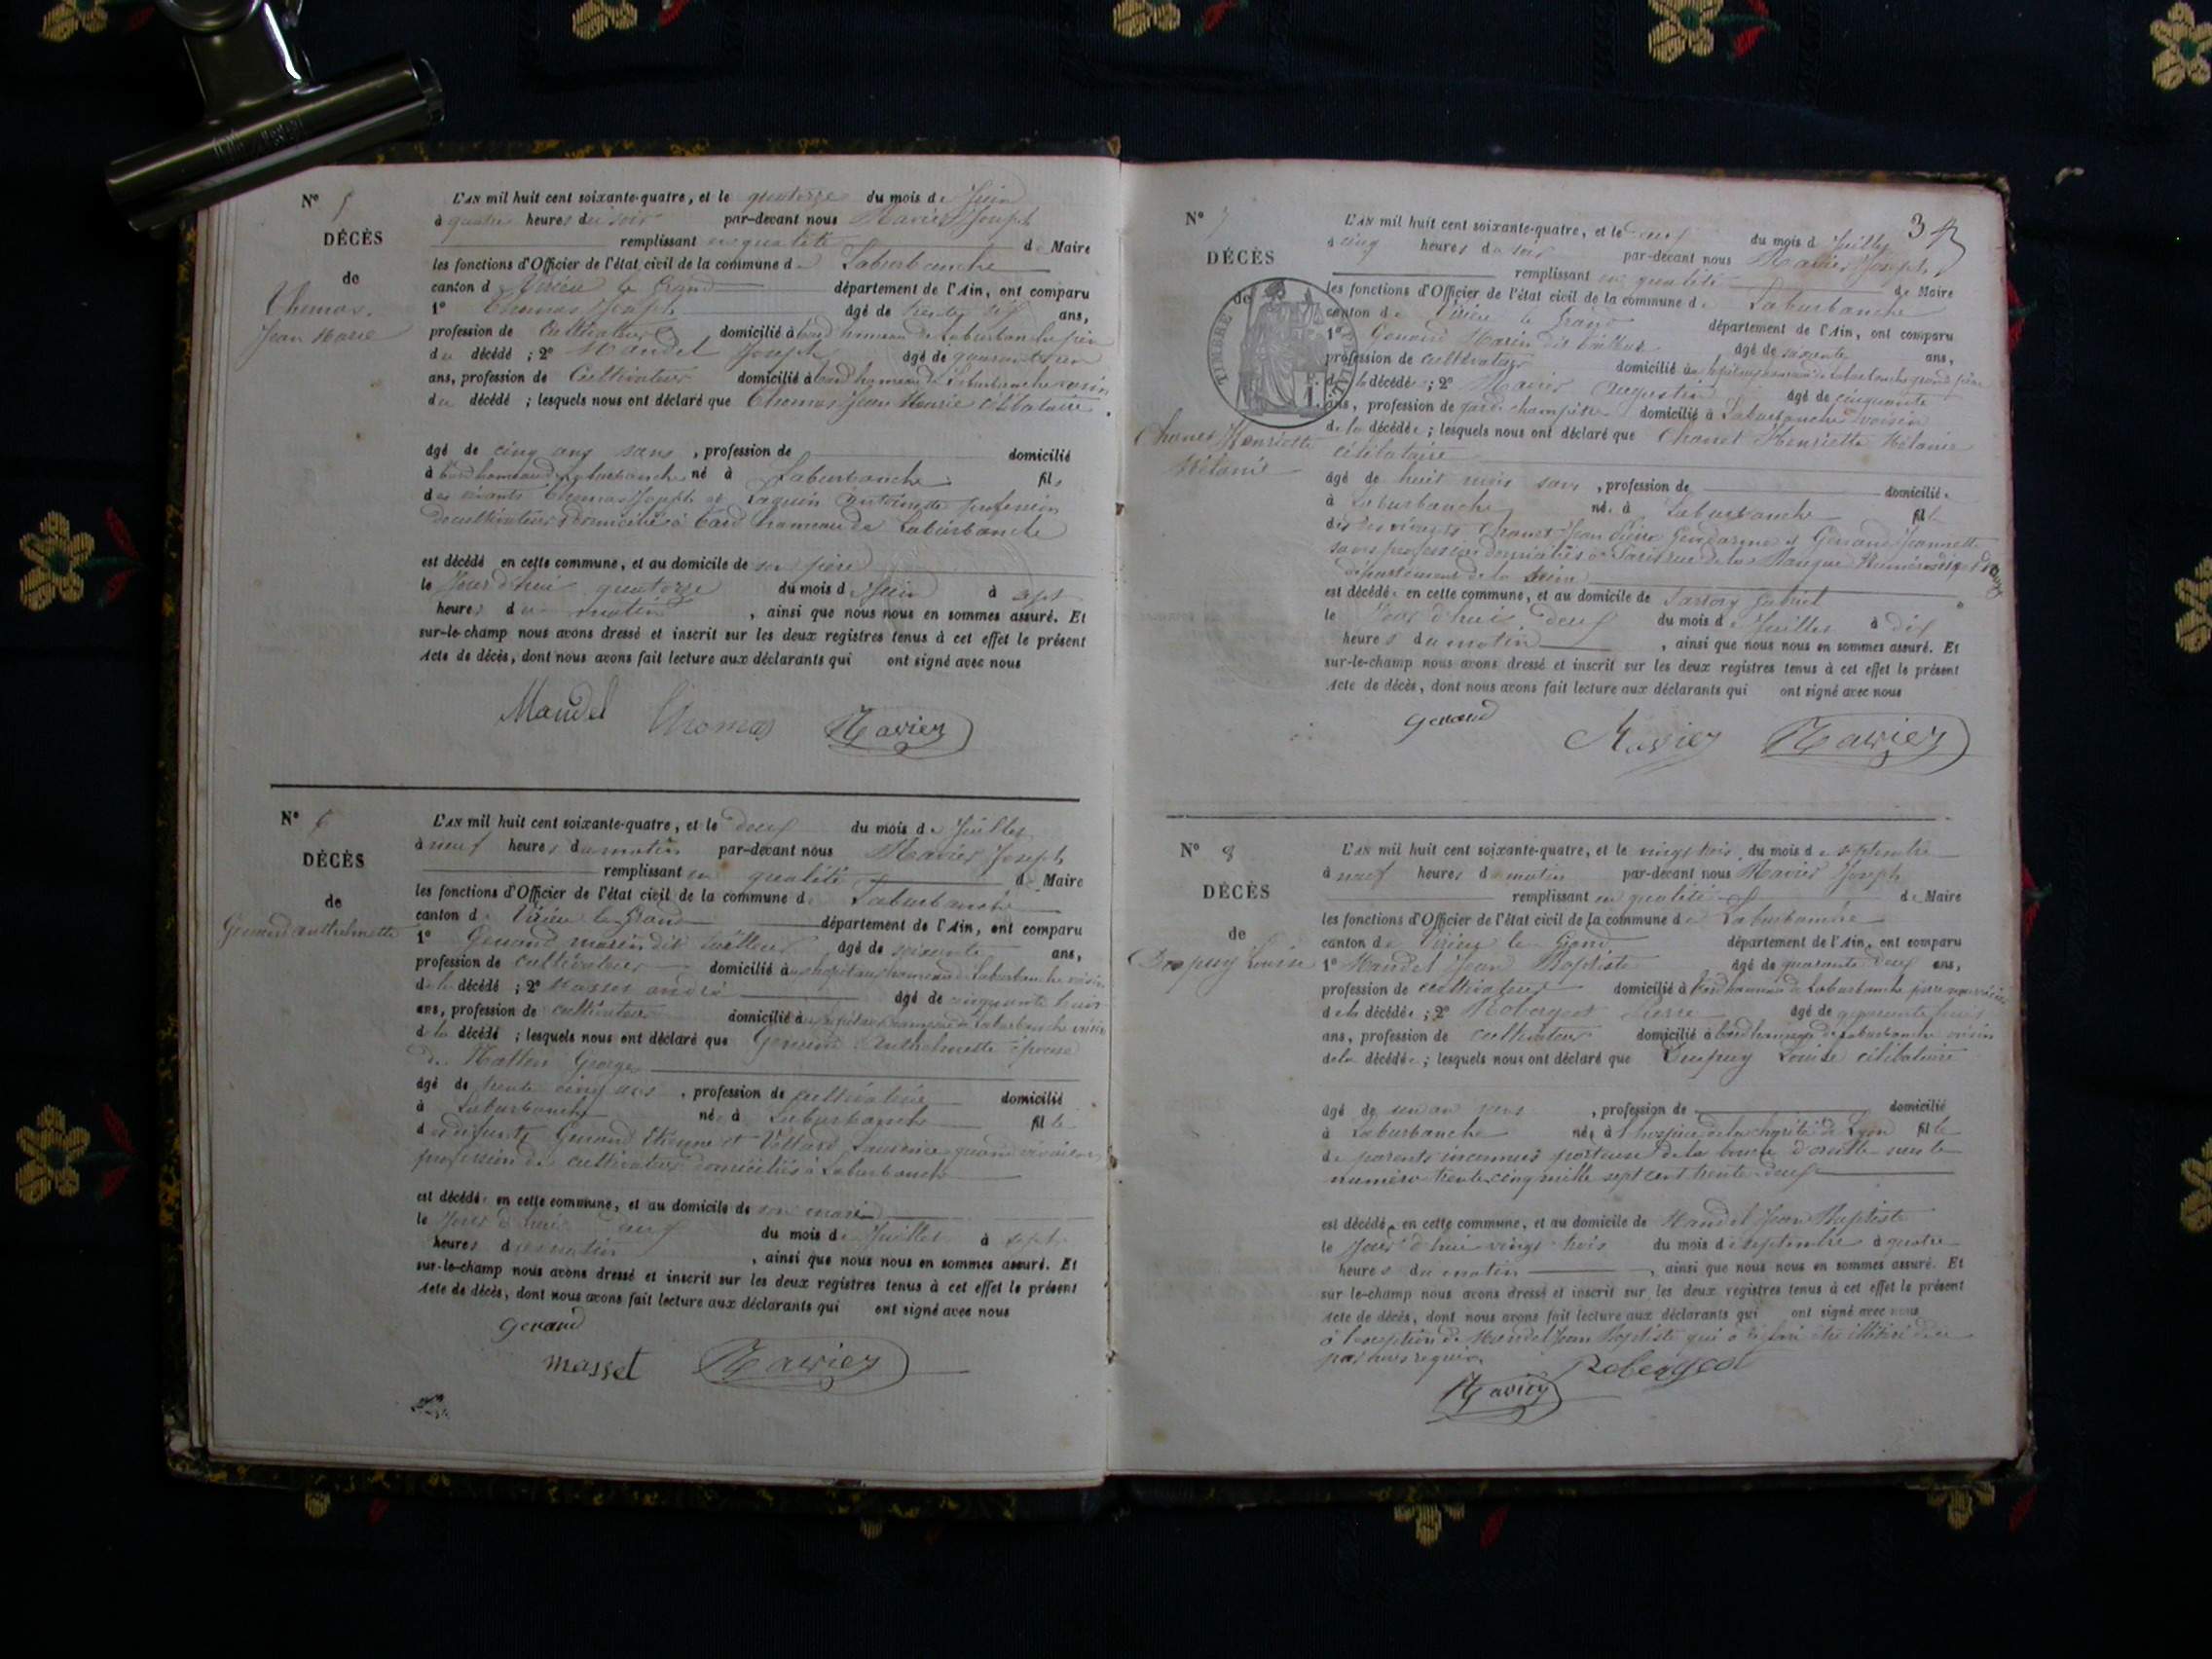 N° 5
DÉCÈS
de
Thomas
Jean Marie
L'AN mil huit cent soixante-quatre, et le quatorze du mois de Juin
à quatre heures du soir par-devant nous Mavier Joseph
remplissant en qualité de Maire
les fonctions d'Officier de l'état civil de la commune de Laburbanche
canton de Virieu le Grand département de l'Ain, ont comparu
1° Thomas Joseph âgé de trente six ans,
profession de Cultivateur domicilié à hameau de Laburbanche père
du décédé ; 2° Mandel Joseph âgé de quarante
ans, profession de Cultivateur domicilié à hameau de Laburbanche voisin
du décédé ; lesquels nous ont déclaré que Thomas Jean Marie célibataire
âgé de cinq ans sans , profession de domicilié
à hameau de Laburbanche né à Laburbanche fils
des vivants Thomas Joseph et Antoinette profession
de cultivateurs domiciliés à hameau de Laburbanche
est décédé en cette commune, et au domicile de son père
le Jourd'hui quatorze du mois de Juin à sept
heures du matin , ainsi que nous nous en sommes assuré. Et
sur-le-champ nous avons dressé et inscrit sur les deux registres tenus à cet effet le présent
Acte de décès, dont nous avons fait lecture aux déclarants qui ont signé avec nous
Mandel Thomas Mavier
N° 6
DÉCÈS
de
Genand anthelmette
L'AN mil huit cent soixante-quatre, et le neuf du mois de Juillet
à neuf heures du matin par-devant nous Mavier Joseph
remplissant en qualité de Maire
les fonctions d'Officier de l'état civil de la commune de Laburbanche
canton de Virieu le Grand département de l'Ain, ont comparu
1° Genand marin dit âgé de soixante ans,
profession de cultivateur domicilié à hameau de Laburbanche voisin
de la décédé ; 2° Masset andré âgé de cinquante huit
ans, profession de cultivateur domicilié à hameau de Laburbanche voisin
de la décédé ; lesquels nous ont déclaré que Genand Anthelmette épouse
de Georges
âgé de trente cinq ans , profession de cultivatrice domicilié
à Laburbanche née à Laburbanche fille
des défunts Genand Etienne et Laurence quand vivaient
profession de cultivateurs domiciliés à Laburbanche
est décédé en cette commune, et au domicile de son mari
le Jourd'hui neuf du mois de Juillet à sept
heures du matin , ainsi que nous nous en sommes assuré. Et
sur-le-champ nous avons dressé et inscrit sur les deux registres tenus à cet effet le présent
Acte de décès, dont nous avons fait lecture aux déclarants qui ont signé avec nous
Genand
masset Mavier
N° 7
DÉCÈS
de
TIMBRE
Chanet Henriette
Mélanie
L'AN mil huit cent soixante-quatre, et le neuf du mois de Juillet
à cinq heures du soir par-devant nous Mavier Joseph
remplissant en qualité de Maire
les fonctions d'Officier de l'état civil de la commune de Laburbanche
canton de Virieu le Grand département de l'Ain, ont comparu
1° Genand Marin dit âgé de soixante ans,
profession de cultivateur domicilié à hameau de Laburbanche grand père
de la décédée ; 2° Mavier Augustin âgé de cinquante
ans, profession de garde champêtre domicilié à Laburbanche voisin
de la décédée ; lesquels nous ont déclaré que Chanet Henriette Mélanie
célibataire
âgé de huit mois sans , profession de domiciliée
à Laburbanche née à Laburbanche fille
des vivants Chanet Jean Pierre Gendarme et Genand Jeannette
sans profession domiciliés à Paris rue de la Banque Numéro
département de la Seine
est décédé en cette commune, et au domicile de Gabriel
le Jourd'hui neuf du mois de Juillet à dix
heures du matin , ainsi que nous nous en sommes assuré. Et
sur-le-champ nous avons dressé et inscrit sur les deux registres tenus à cet effet le présent
Acte de décès, dont nous avons fait lecture aux déclarants qui ont signé avec nous
Genand Mavier Mavier
N° 8
DÉCÈS
de
Dupuy Louise
L'AN mil huit cent soixante-quatre, et le vingt trois du mois de septembre
à neuf heures du matin par-devant nous Mavier Joseph
remplissant en qualité de Maire
les fonctions d'Officier de l'état civil de la commune de Laburbanche
canton de Virieu le Grand département de l'Ain, ont comparu
1° Mandel Jean Baptiste âgé de quarante deux ans,
profession de cultivateur domicilié à hameau de Laburbanche père nourricier
de la décédée ; 2° Roberjeot Pierre âgé de
ans, profession de cultivateur domicilié à hameau de Laburbanche voisin
de la décédée ; lesquels nous ont déclaré que Dupuy Louise célibataire
âgé de un an sans , profession de domicilié
à Laburbanche née à l'hospice de la charité de Lyon fille
de parents inconnus porteuse de la boucle d'oreille sous le
numéro trente cinq mille sept cent trente deux
est décédée en cette commune, et au domicile de Mandel Jean Baptiste
le Jourd'hui vingt trois du mois de septembre à quatre
heures du matin , ainsi que nous nous en sommes assuré. Et
sur-le-champ nous avons dressé et inscrit sur les deux registres tenus à cet effet le présent
Acte de décès, dont nous avons fait lecture aux déclarants qui ont signé avec nous
à l'exception de Mandel Jean Baptiste qui a dit être illitéré de ce
par nous requis.
Roberjeot
Mavier